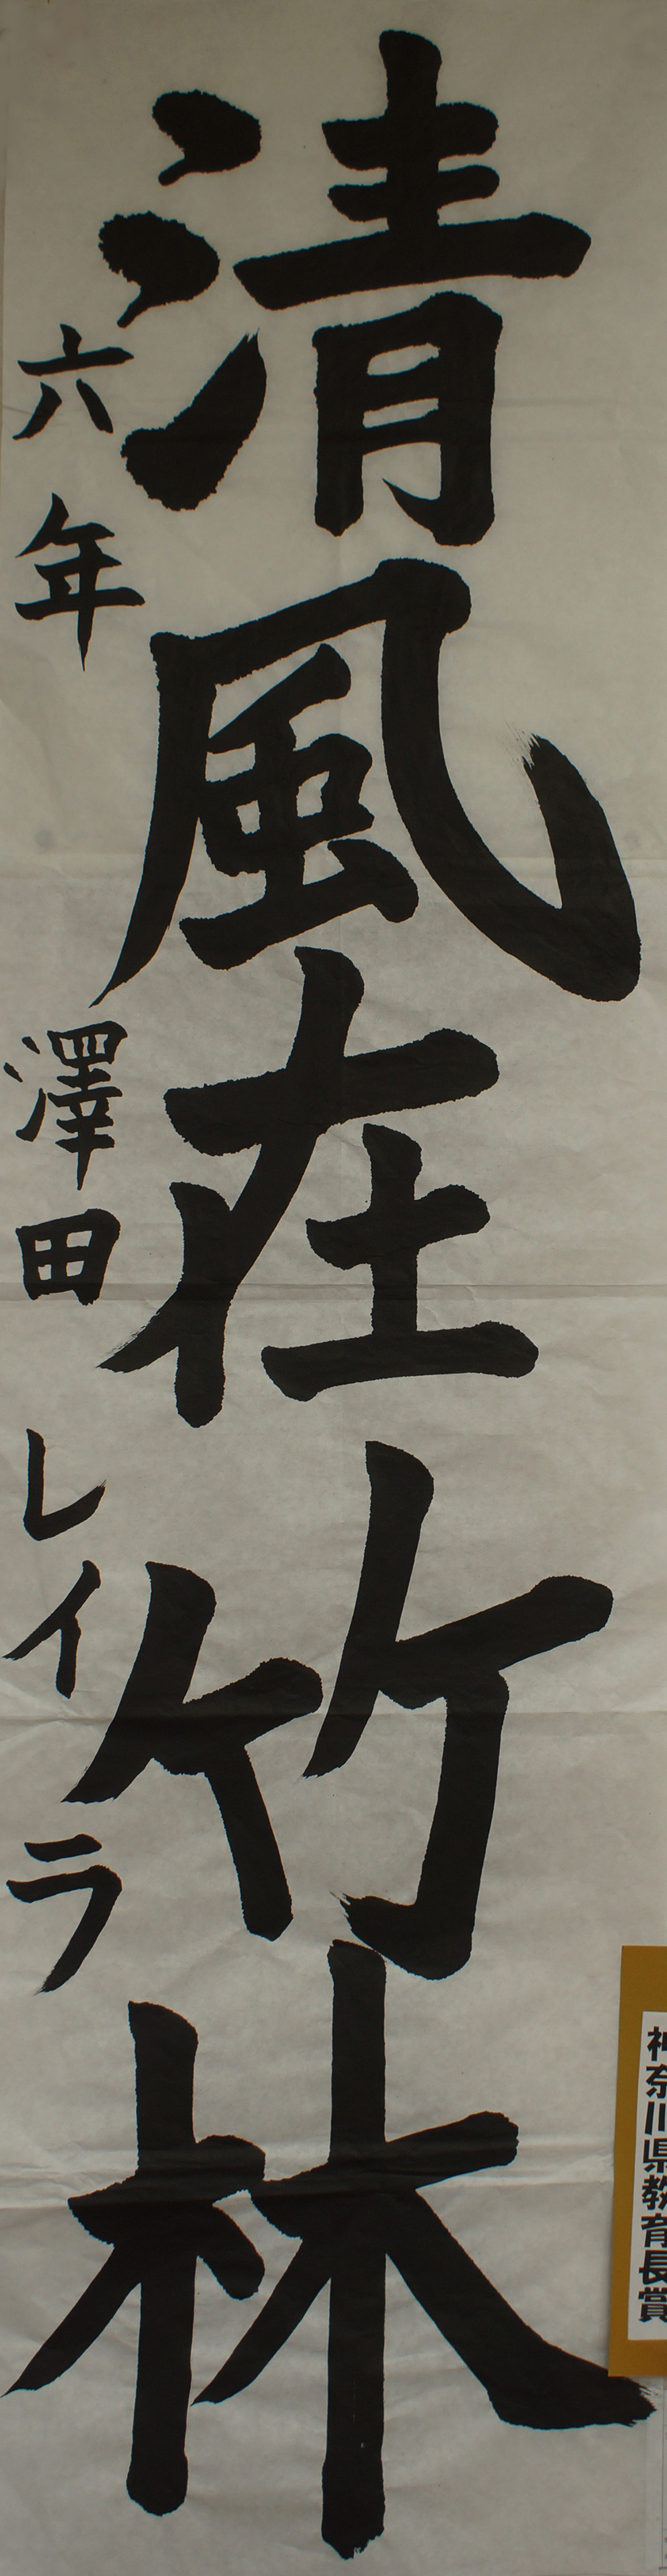 清風在竹林
六年 澤田 レイラ
神奈川県教育長賞